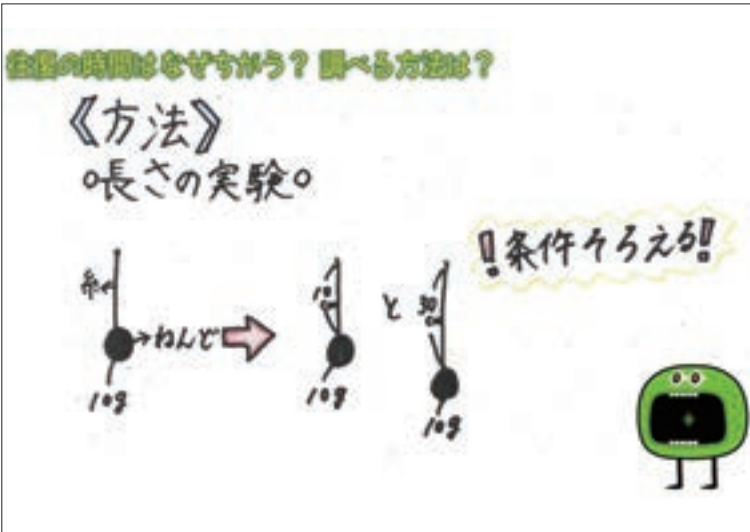 往復の時間はなぜちがう？ 調べる方法は？
《方法》
○長さの実験○
！条件そろえる！！
糸
ねんど
10g
10
cm
10g
と
30
cm
10g